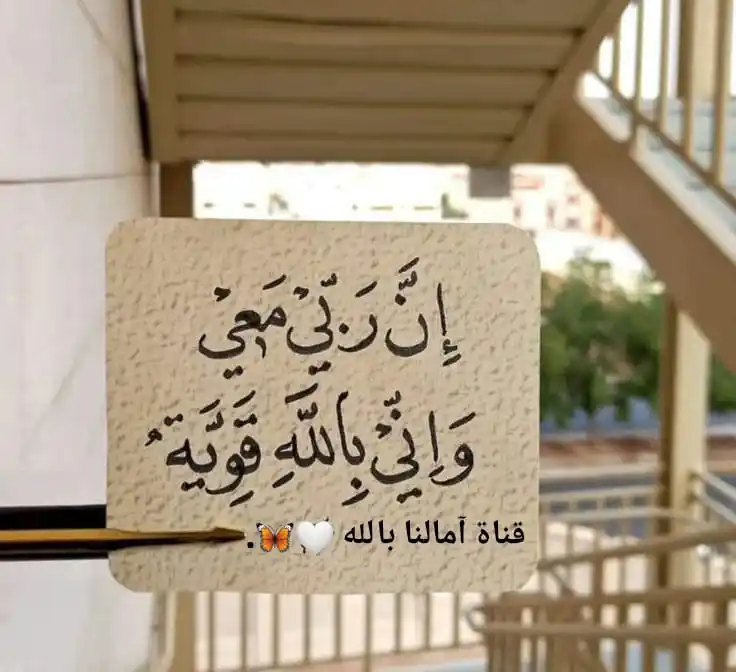 إِنَّ رَبِّيْ مَعِيْ
وَإِنِّيْ بِاللَّهِ قَوِيَّةٌ
قناة آمالنا بالله 🤍🦋.